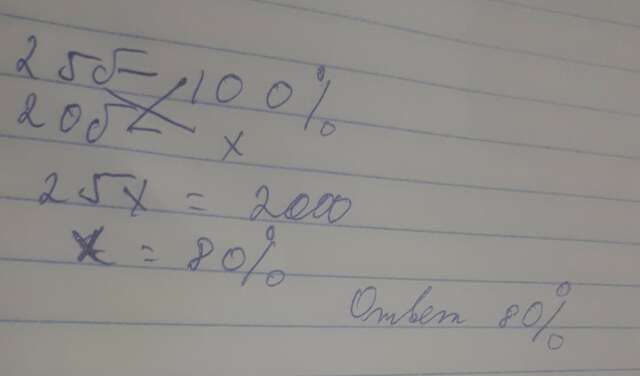 25б - 100%
20б - x
25x = 2000
x = 80%
Ответ 80%